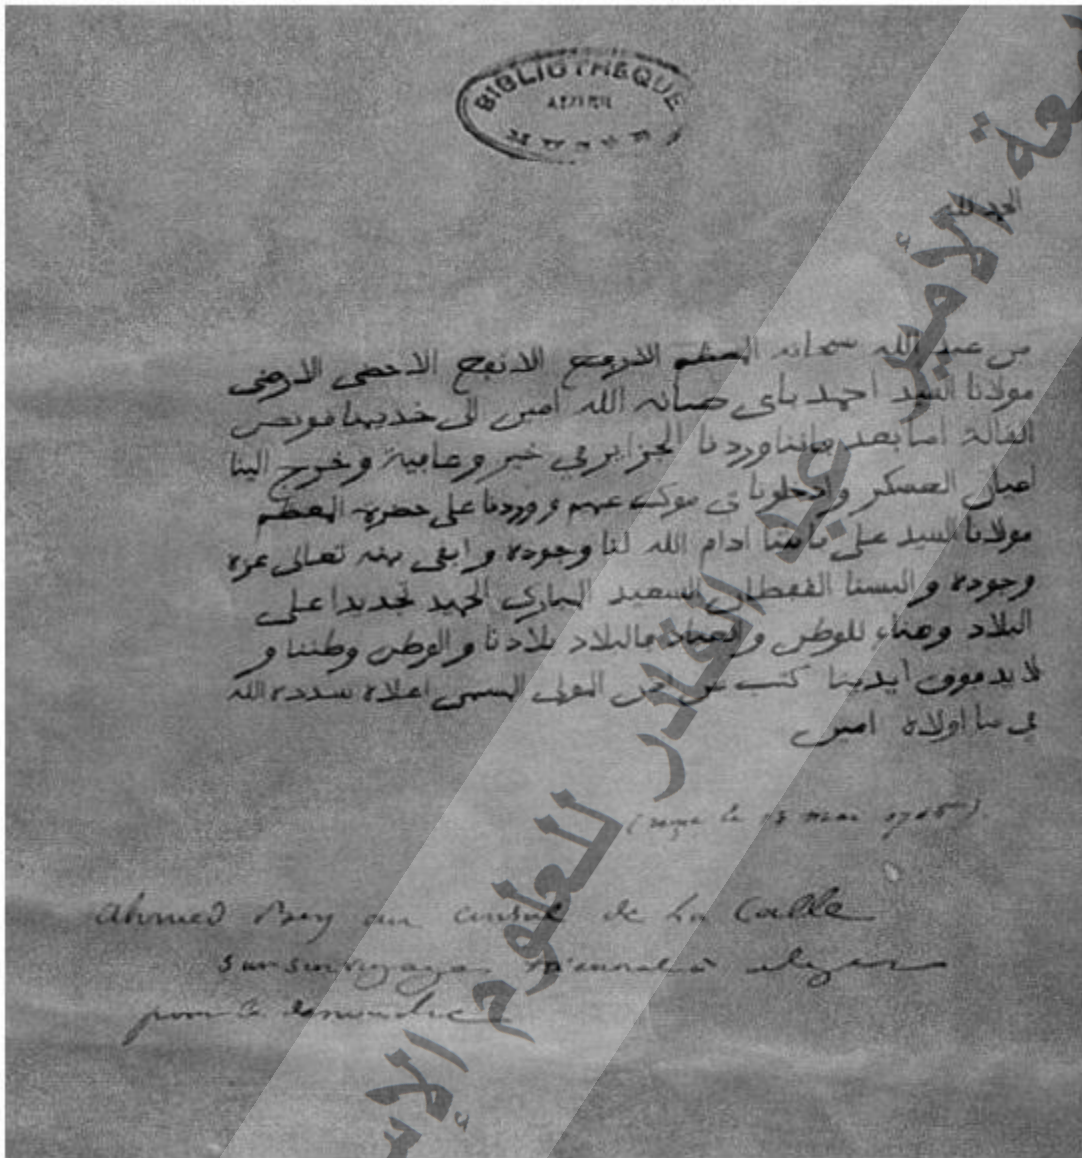 BIBLIOTHEQUE
الحمد لله
من عبد الله سبحانه المعظم الارفع الانجح الاحضى الارضى
مولانا السيد احمد باى صانه الله امين الى خديمنا فونصر
القالة اما بعد فاننا وردنا الجزاير في خير وعافية وخرج الينا
اعيان العسكر وادخلونا في موكب عهم ووردنا على حضرة المعظم
مولانا السيد على باشا ادام الله لنا وجوده وابقى بمنه تعالى عزه
وجوده والبسنا القفطان السعيد المبارك الجديد تجديدا على
البلاد وهناء للوطن والعباد فالبلاد بلادنا والوطن وطننا و
لا يد فوق أيدينا كتب عن اذن المولى المسمى اعلاه سدده الله
في ما اولاه امين
Ahmed Bey au Consul de La Calle
sur son voyage à Alger
pour le
جامعة الأمير عبد القادر للعلوم الإس